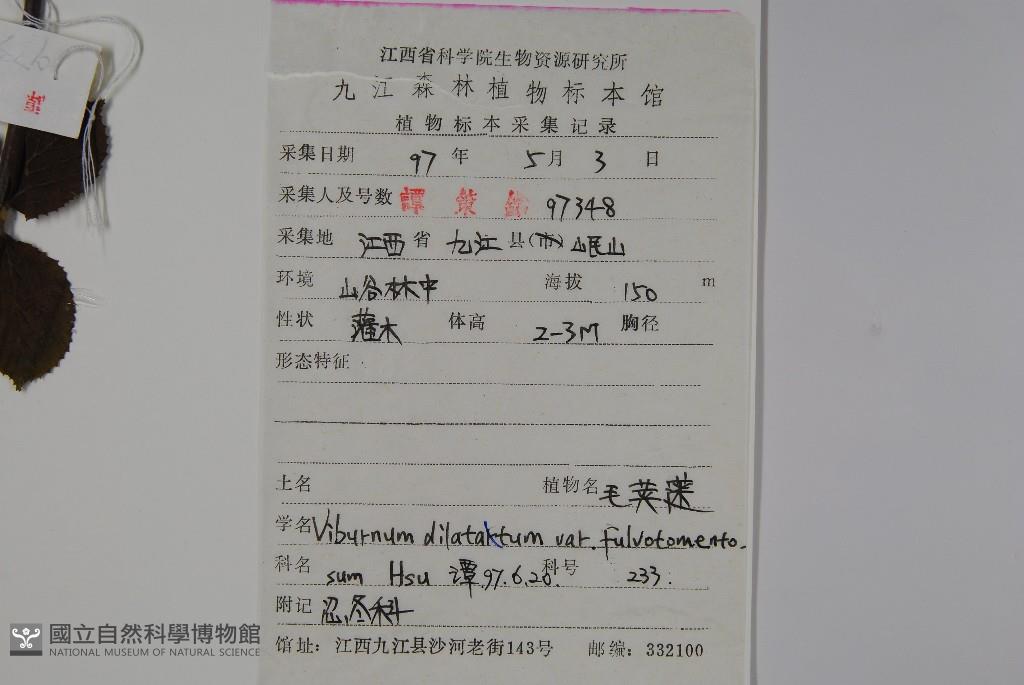 江西省科学院生物资源研究所
九江森林植物标本馆
植物标本采集记录
采集日期 97 年 5 月 3 日
采集人及号数 譚策銘 97348
采集地 江西 省 九江 县(市) 岷山
环境 山谷林中 海拔 150 m
性状 灌木 体高 2-3M 胸径
形态特征
土名 植物名 毛荚蒾
学名 Viburnum dilatatum var. fulvotomento-
科名 sum Hsu 谭 97.6.20. 科号 233.
附记 忍冬科
馆址: 江西九江县沙河老街143号 邮编: 332100
國立自然科學博物館
NATIONAL MUSEUM OF NATURAL SCIENCE